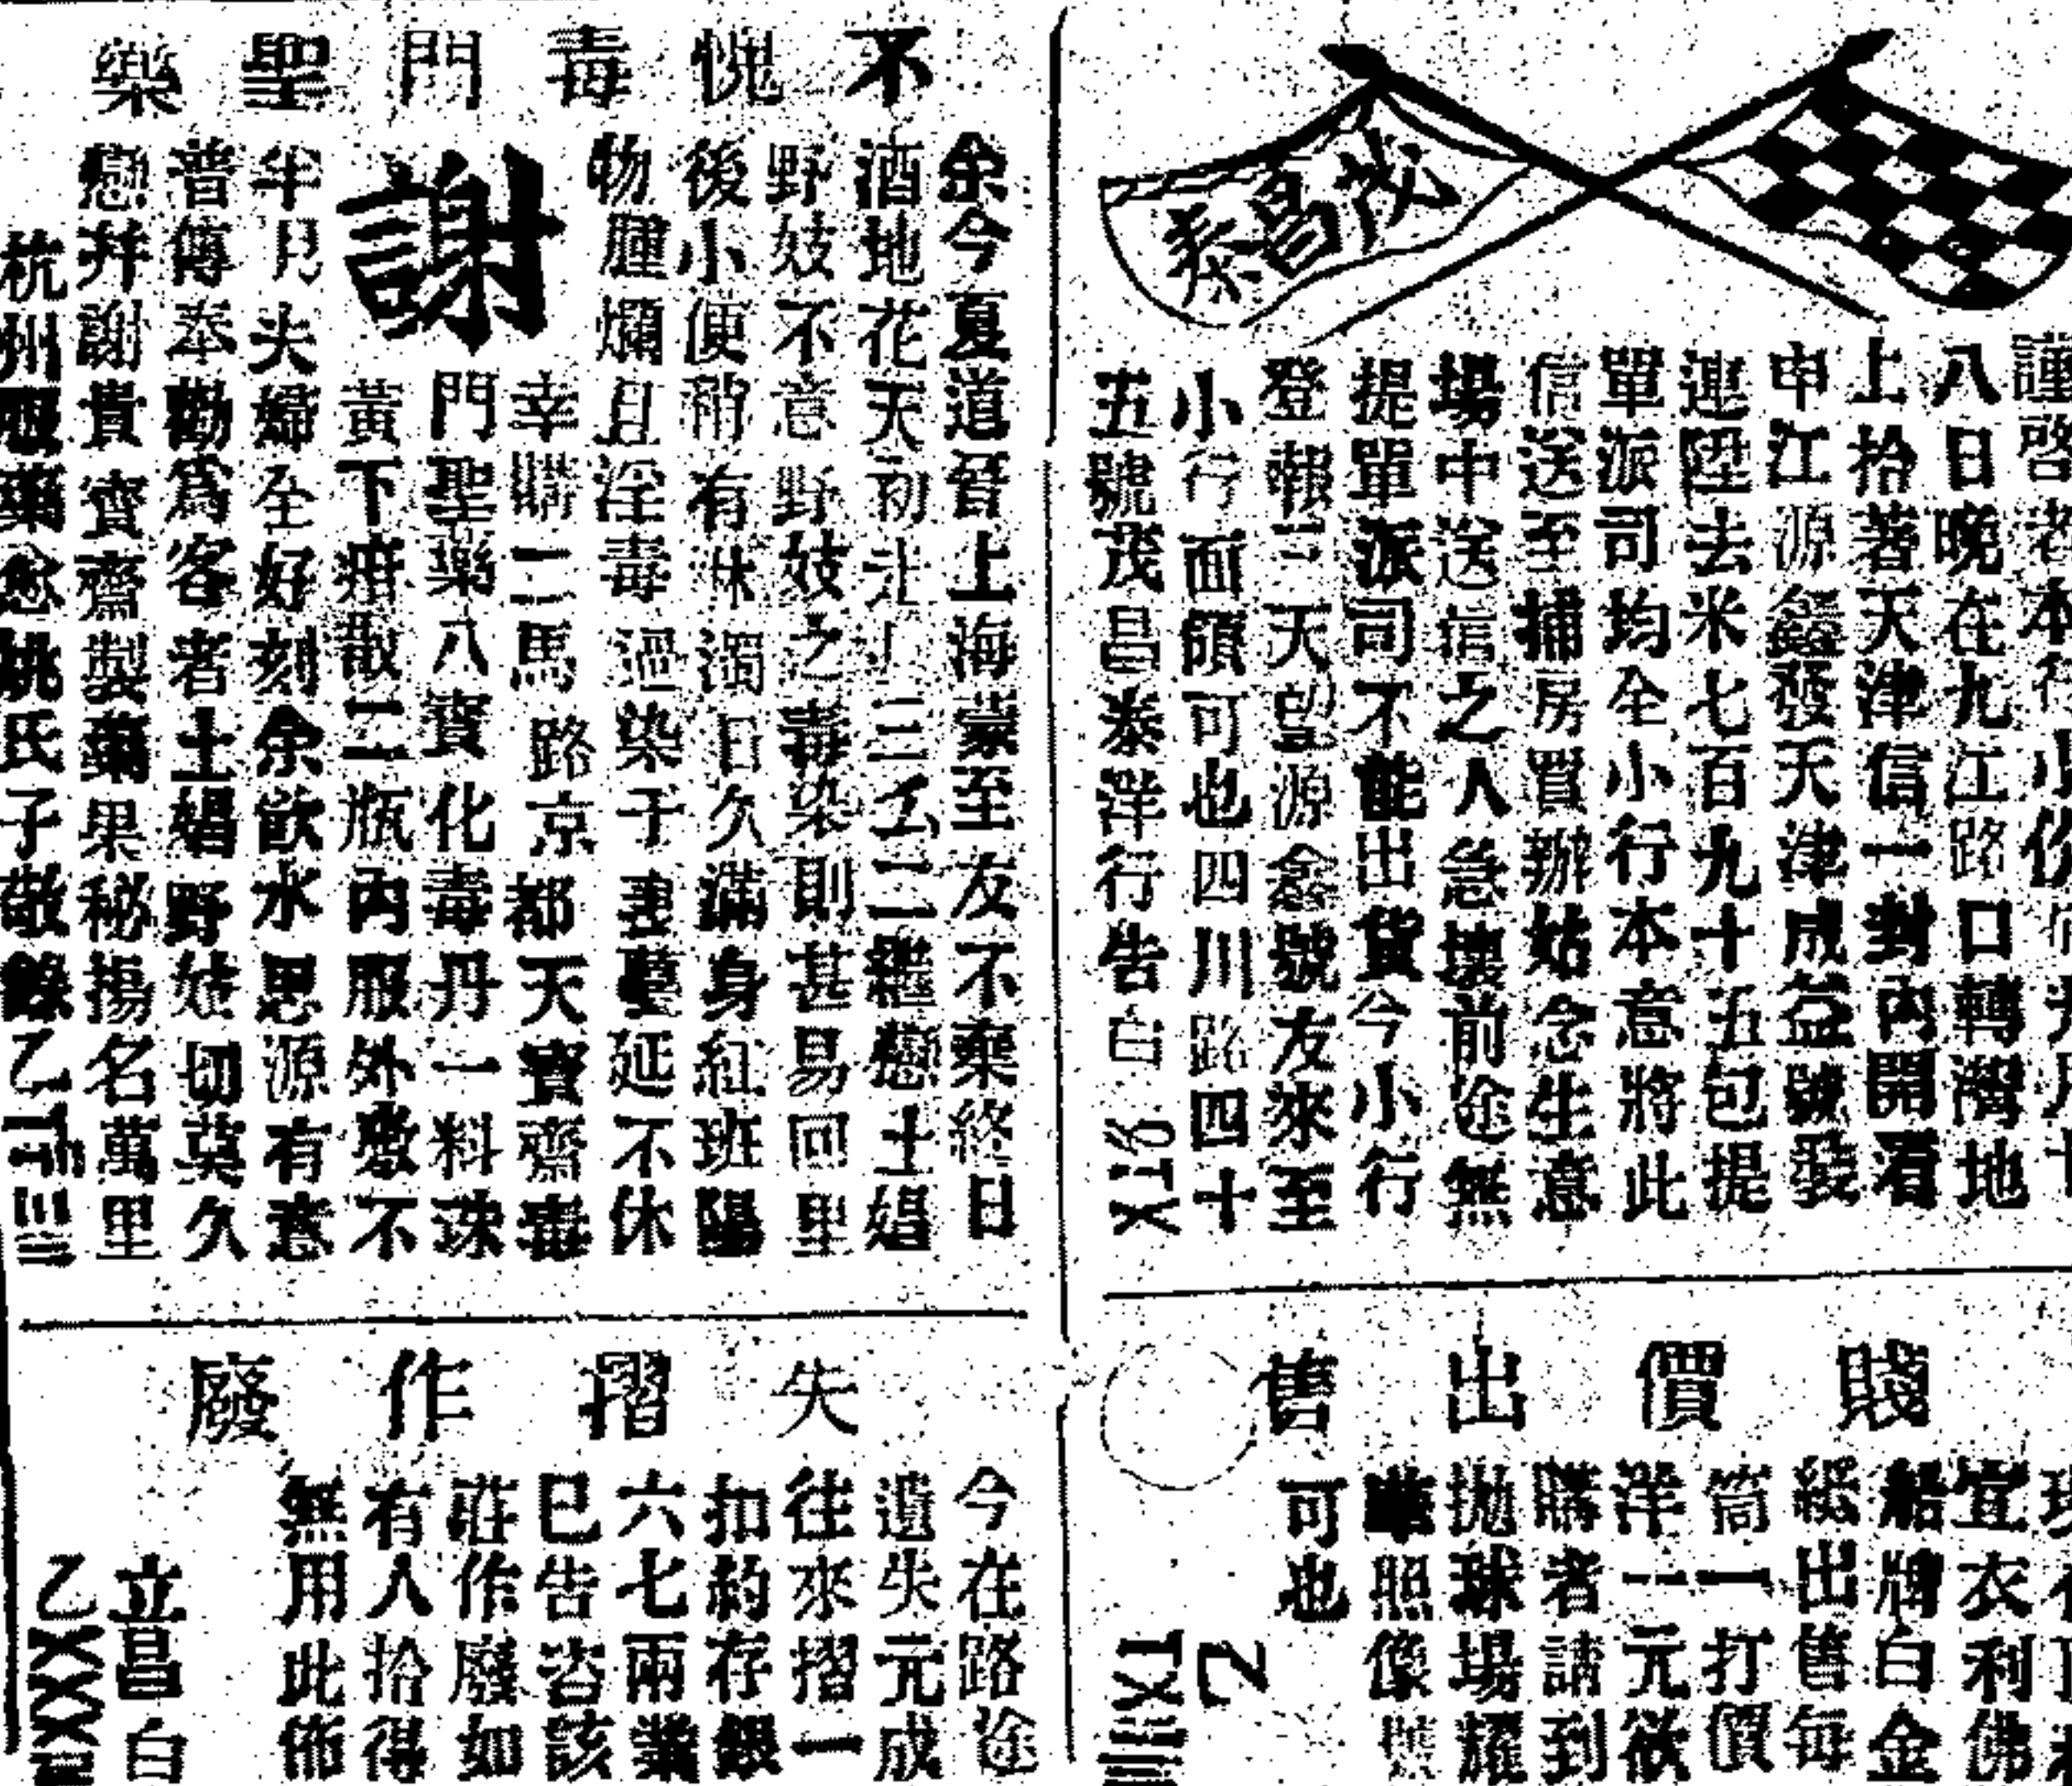 茂昌泰
謹啓者本行
八日晚在九江路口轉灣地
上拾著天津信一對內開看
申江源鑫發天津成益號發
進陞去米七百九十五包提
單派司均全小行本意將此
信送至捕房置辦姑念生意
場中送信之人急壞前途無
提單派司不能出貨今小行
登報三天望源鑫號友來至
小行面領可也四川路四十
五號茂昌泰洋行告白
不愧毒門聖藥
余今夏道晉上海蒙至友不棄終日
酒地花天初三二繼戀土娼
野妓不意野妓之毒染則甚易回里
後小便稍有淋濁日久滿身紅班陽
物腫爛且淫毒過染于妻延不休
謝
幸購二馬路京都天寶齋毒
門聖藥八寶化毒丹一料珠
黃下疳散二瓶內服外敷不
半月夫婦全好刻余飲水思源有意
普傳奉勸爲客者土娼野妓切莫久
戀并謝貴寶齋製藥果秘揚名萬里
杭州服藥愈姚氏子敬錄乙
賤價出售
宜衣利佛
船牌白金
紙出售每
筒一打價
洋一元欲
購者請到
拋球場耀
華照像號
可也
乙
失摺作廢
今在路途
遺失元成
往來摺一
扣約存銀
六七兩業
已告咨該
莊作廢如
有人拾得
無用此佈
立昌白
乙